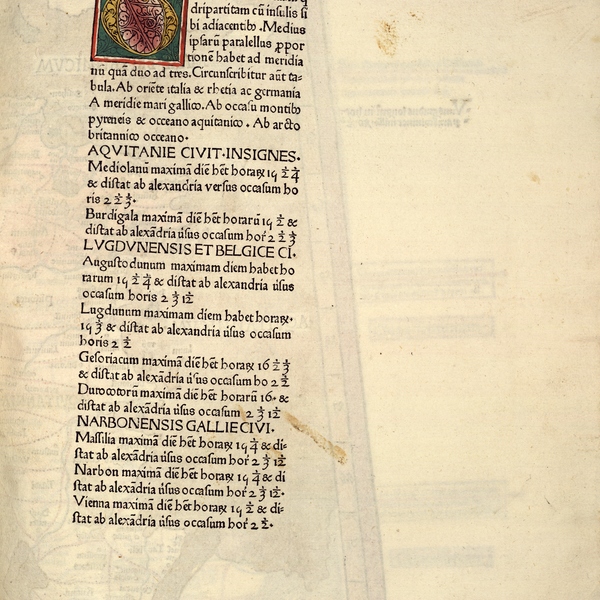 dripartitam cū insulis si
bi adiacentibꝰ. Medius
ipsarū paralellus ꝓpor
tionē habet ad meridia
nū quā duo ad tres. Circunscribitur aūt ta-
bula. Ab oriēte italia & rhetia ac germania
A meridie mari gallico. Ab occasu montibꝰ
pyreneis & occeano aquitanico. Ab arcto
britannico occeano.
AQVITANIE CIVIT. INSIGNES.
Mediolanū maximā diē hēt horaꝝ 15 ½ ¼
& distat ab alexandria versus occasum ho
ris 2 ½ ⅓.
Burdigala maximā diē hēt horarū 15 ½ &
distat ab alexādria ūsus occasum hoř 2 ½ ⅓
LVGDVNENSIS ET BELGICE CI.
Augustodunum maximam diem habet ho
rarum 15 ½ ¼ & distat ab alexandria ūsus
occasum horis 2 ⅓ 1/12
Lugdunum maximam diem habet horaꝝ.
15 ⅔ & distat ab alexandria ūsus occasum
horis 2 ½
Gesoriacum maximā diē hēt horaꝝ 16 ½ ⅓
& distat ab alexādria ūsus occasum ho 2 ½
Durocotorū maximā diē hēt horarū 16. &
distat ab alexādria ūsus occasum 2 ⅓ 1/12
NARBONENSIS GALLIE CIVI.
Massilia maximā diē hēt horaꝝ 15 ¼ & di-
stat ab alexādria ūsus occasum hoř 2 ⅓ 1/12
Narbon maximā diē hēt horaꝝ 15 ¼ & di
stat ab alexādria ūsus occasum hoř 2 ⅓ 1/12.
Vienna maximā diē hēt horaꝝ 15 ½ & di-
stat ab alexādria ūsus occasum hoř 2 ½.